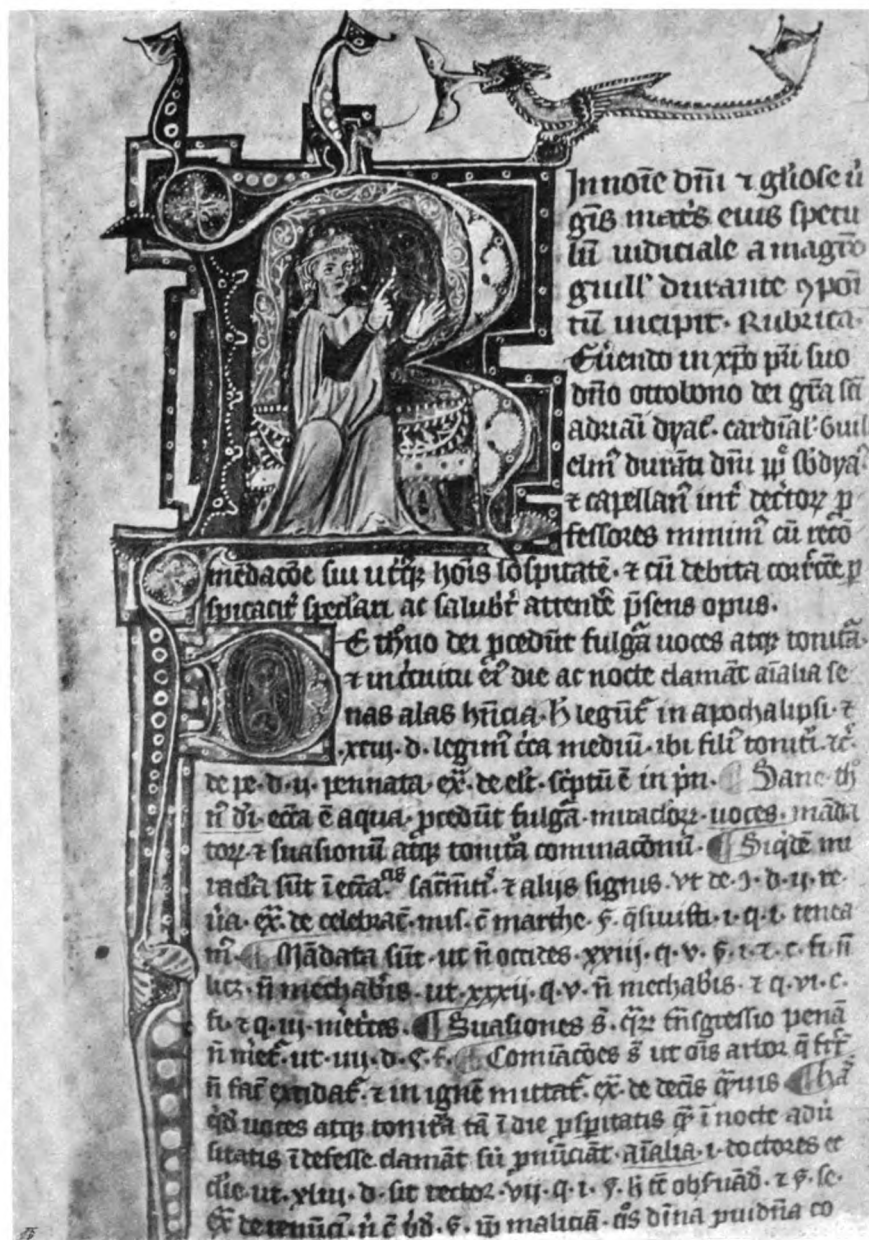 In noīe dñi ⁊ gl̓iose ū
gīs mat̓s eius specu
lū iudiciale a magr̄o
guill̓ durante ꝯpoſi
tū incipit · Rubrica ·
Eu̓endo in xp̄o pr̄i suo
dño ottobono dei gr̄a sc̄i
adriāi dyac̄ · cardīal̓ · Guil
elm̓ durāti dñi pp̄ sb̄dyac̄
⁊ capellan̓ int̓ dec̓torꝝ ꝓ
fessores minim̓ cū recō
mēdac̄oe sui ut̓iꝰqꝫ hoīs sospitatē · ⁊ cū debita correc̄oe ꝑ
spicacit̓ spec̓lari ac salub̓r attendē p̄sens opus ·
E th̓no dei ꝓcedūt fulg̓a uoces atqꝫ tonit̓a ·
⁊ in c̓cuitu ei̓ die ac nocte clamāt aīalia se
nas alas hn̄cia · h̓ legūt̓ in apochalipsi · ⁊
xxiij · d · legim̓ c̓ca mediū · ibi fili̓ tonit̓i · ⁊c̄ ·
de pe · d · ij · pennata · ex̄ · de el̄c · sc̓ptū ē in p̄n · Sane th̓
n̓ d̓i · ecc̄a ē a qua · ꝓcedūt fulg̓a · mirac̓lorꝝ · uoces · māda
torꝝ · ⁊ suasionū atqꝫ tonit̓a cominac̄onū · Siq̓dē mi
rac̓la sūt ī ecc̄a · sac̄mēt̓ · ⁊ alijs signis · vt de · d · ij · re
u̓a · ex̄ · de celebrac̄ · mis · c̄ marthe · §. q̄siuisti · i · q · i · tenea
m̓ · Mādata sūt · ut n̄ occides · xxiij · q · v · §. i · ⁊ · c · fi · n̄
licꝫ · n̄ mechab̓is · ut · xxxij · q · v · n̄ mechab̓is · ⁊ q · vi · c ·
fi · ⁊ q · iij · Suasiones s̓ · tn̄sgressio penā
n̄ m̓et̓ · ut · iiij · d · §. f · Comīac̄ões s̓ ut oīs arbor q̄
n̄ fac̄ excidat̓ · ⁊ in ignē mittat̓ · ex̄ · de dec̄is
qd̓ uoces atqꝫ tonit̓a tā ī die ꝓsꝑitatis q̄ ī nocte adū
sitatis īdefesse clamāt sū ꝓnūciāt · aīalia · i · doctores ec
c̄lie · ut · xliij · d · sit rector · vij · q · i · §. h̓ · §. se ·
ex̄ de renūc̄i · §. maliciā · dīna ꝓuidn̄a co